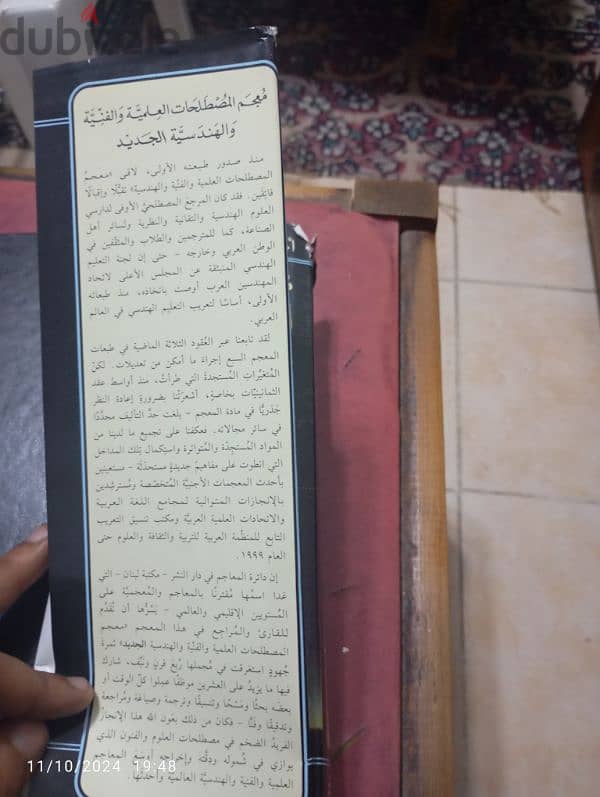 dubizzle
مُعجَم المُصْطَلَحَات العِلميَّة وَالفَنِّيَّة
وَالهَندَسيَّة الجَديد
منذ صدور طبعته الأولى، لاقى «معجمُ
المصطلحات العلمية والفنّية والهندسية» تقبُّلًا وإقبالًا
فائقَين. فقد كان المرجعَ المصطلحيَّ الأوفى لدارسي
العلوم الهندسية والتقانية والنظرية ولسائر أهل
الصناعة، كما للمترجمين والطلاب والمثقّفين في
الوطن العربي وخارجه - حتى إن لجنة التعليم
الهندسي المنبثقة عن المجلس الأعلى لاتحاد
المهندسين العرب أوصت باتخاذه، منذ طبعاته
الأولى، أساسًا لتعريب التعليم الهندسي في العالم
العربي.
لقد تابعنا عبر العُقود الثلاثة الماضية في طبعات
المعجم السبع إجراءَ ما أمكن من تعديلات. لكنّ
المُتغيِّراتِ المُستجدةَ التي طرأتْ، منذ أواسط عقد
الثمانينيّات بخاصةٍ، أشعرَتْنا بضرورةِ إعادة النظر
جَذريًّا في مادة المعجم - بلغت حدَّ التأليف مجدَّدًا
في سائر مجالاته. فعكفنا على تجميع ما لدينا من
المواد المُستجِدّة والمُتواترة واستِكمال تِلك المداخل
التي انطوت على مفاهيمَ جديدةٍ مستحدَثة - مستعينين
بأحدث المعجمات الأجنبيَّة المُتخصّصة ومُسترشِدين
بالإنجازات المتوالية لمجامع اللغة العربية
والاتحادات العلمية العربيَّة ومكتب تنسيق التعريب
التابع للمنظّمة العربية للتربية والثقافة والعلوم حتى
العام ١٩٩٩.
إن دائرة المعاجم في دار النشر - مكتبة لبنان - التي
غدا اسمُها مُقترنًا بالمعاجم والمُعجميَّة على
المُستويين الإقليمي والعالمي - يَسُرُّها أن تُقدِّم
للقارئ والمُراجع في هذا المعجم «معجم
المصطلحات العلمية والفنّية والهندسية الجديد» ثمرةَ
جُهودٍ استغرقت في مُجملها رُبعَ قرنٍ ونَيِّف، شارك
فيها ما يزيدُ على العشرين موظفًا عمِلوا كلَّ الوقت أو
بعضه بحثًا ومَسْحًا وتنسيقًا وترجمة وصياغة ومُراجعة
وتدقيقًا وفنًّا - فكان من ذلك بعَون الله هذا الإنجاز
الفريدُ الضخم في مصطلحات العلوم والفنون الذي
يوازي في شُموله ودقَّته وإخراجه أوسعَ المعاجم
العلمية والفنية والهندسيَّة العالميَّة وأحدثَها.
11/10/2024 19:48